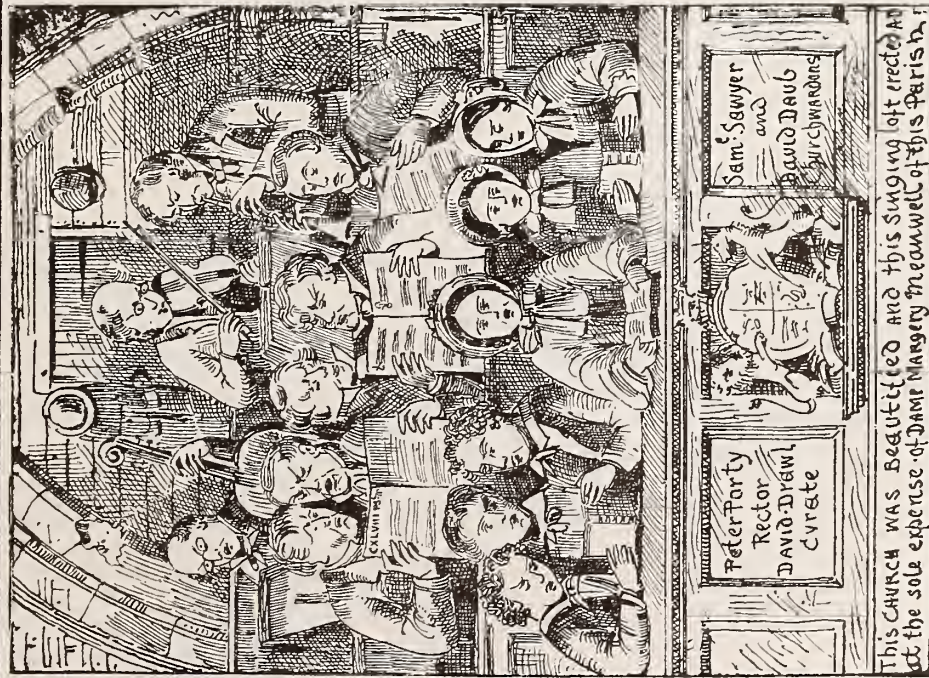 Peter Porty
Rector
DAVID DrawL
CVrate
Sam^l Sawyer
and
David Daub
Churchwardins
This CHURCH WAS Beautifed AND this Singing loft erected AD
at the sole expense of DAME Margery Meanwel of this Parish